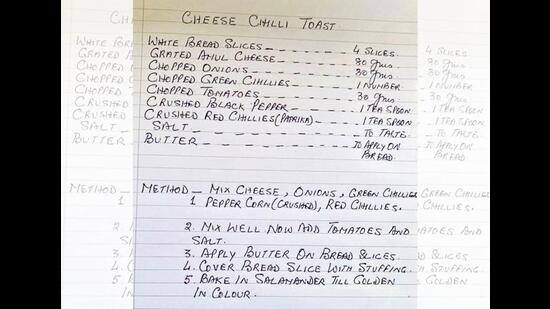 CHEESE CHILLI TOAST.
WHITE BREAD SLICES - 4 SLICES.
GRATED AMUL CHEESE - 80 gms.
CHOPPED ONIONS - 30 gms.
CHOPPED GREEN CHILLIES - 1 NUMBER
CHOPPED TOMATOES - 30 gms.
CRUSHED BLACK PEPPER - 1 TEA SPOON
CRUSHED RED CHILLIES (PAPRIKA) - 1 TEA SPOON
SALT - TO TASTE
BUTTER - TO APPLY ON
BREAD.
METHOD - MIX CHEESE, ONIONS, GREEN CHILLIES
1 PEPPER CORN (CRUSHED), RED CHILLIES.
2. MIX WELL NOW ADD TOMATOES AND
SALT.
3. APPLY BUTTER ON BREAD SLICES
4. COVER BREAD SLICE WITH STUFFING.
5. BAKE IN SALAMANDER TILL GOLDEN
IN COLOUR.